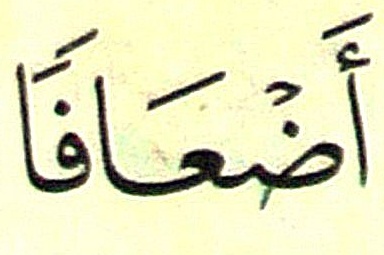 أَضْعَافًا